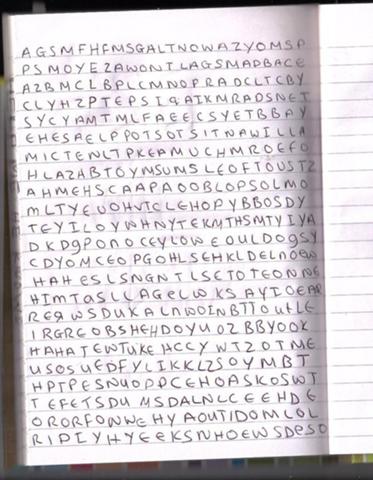 AGSMFHFMSGALTNOWAZYOMSP
PSMOYEZAWONTLAGSMADBACE
AZBMCLBPLCMNOPRADCLTCBY
CLYHZPTEPSIGAIKMRADSNET
SYCYAMTMLFAEECSYETBBAY
EHESAELPPOTSOTSITNAWILLA
MICTENLTPKEAMUCHMROEFO
HLAZHBTOYMSUNSLEOFTOUSTZ
AHMEHSCAAPAOOBLOPSOLMO
MLTYEUOHVTCLEHOPYBBOSDY
TEYILOYWHNYTEKMTHSMTYIYA
DKDgPONOCEYLOWEOULDOgSY
CDYOMCEOPGOHLSEHKLDELNOEW
HAHESLSNGNTLSETOTEONNE
HIMTaSLLAGeLWKSAYIOEAR
REAWSDUKALNWOINBTTOULLE
IRGREOBSHEHDOYUOZBBYOOK
HAHATEWTUKEHCCYWTZOTME
USOSUEDFYLIKKLZSOYMBT
HPTPESNUOPPCEHOASKOSWT
TEFETSDUMSDALNLCEEHDE
ORORFONWEHYAOUTIDOMLOL
RIPIEYHYEEKSNHOEWSDPSO